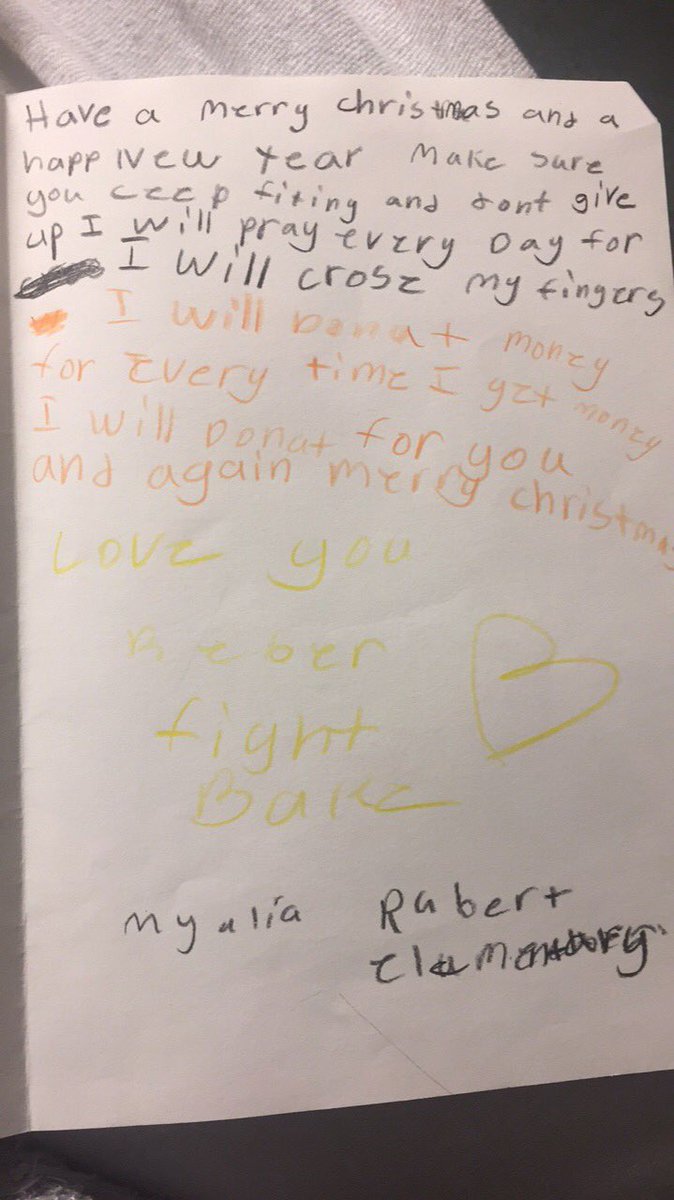 Have a merry christmas and a
happ New Year Make sure
you ceep fiting and dont give
up I will pray every Day for
I will crose my fingers
I will Donat money
for Every time I get money
I will Donat for you
and again merry christmas
Love you
fight
Bake
Myalia Rubert